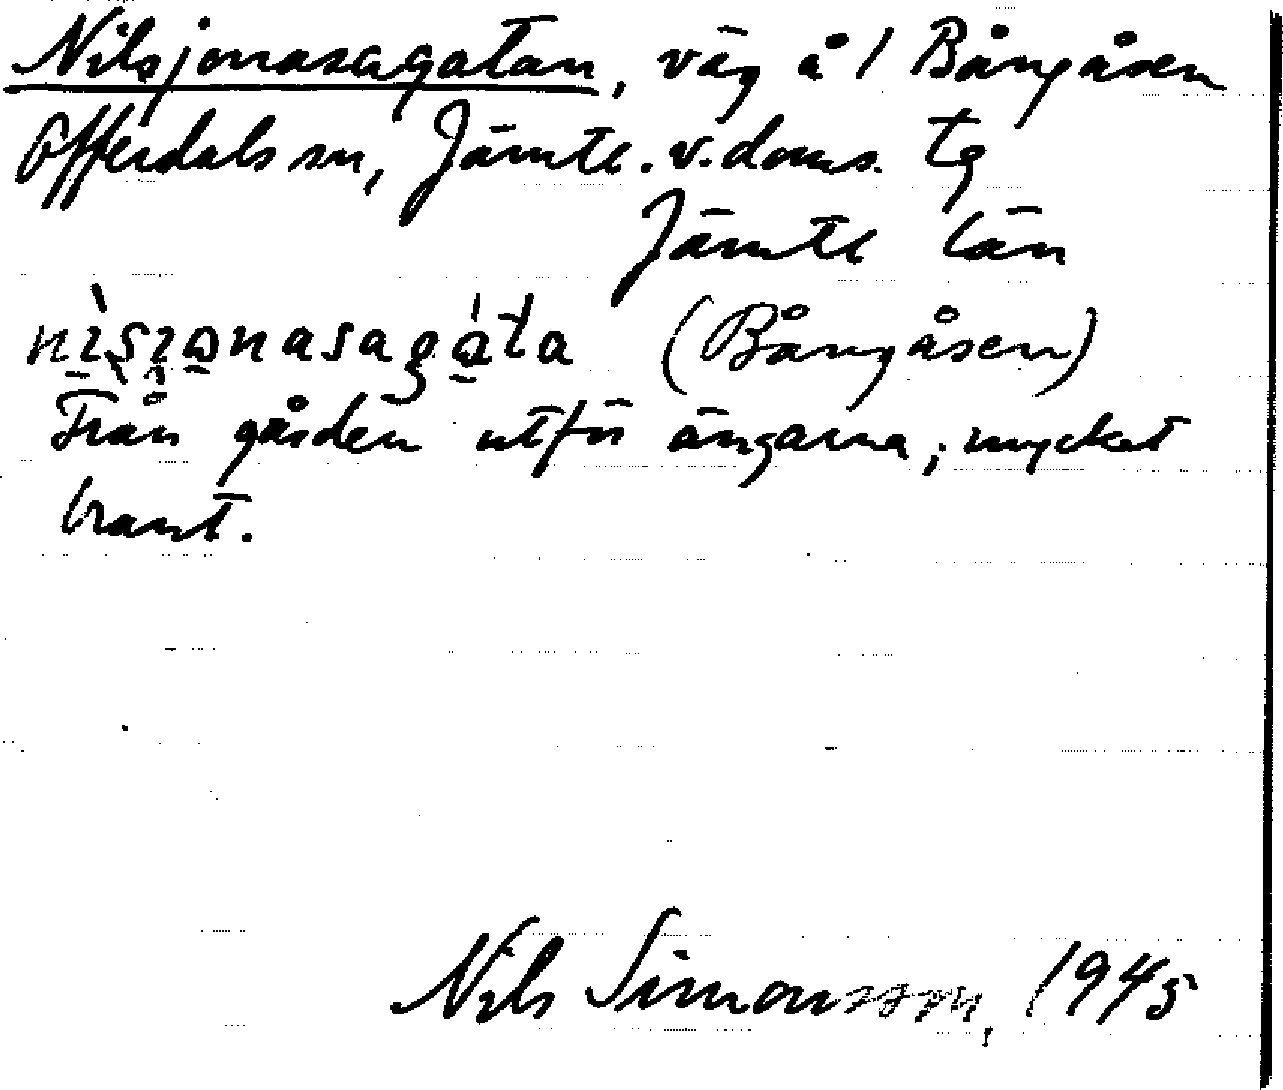 Nilsjonasagatan, väg å 1 Bångåsen
Offerdals sn, Jämtl. v. doms. tg
Jämtl län
(Bångåsen)
Från gården utför ängarna, mycket
brant.
Nils Simonsson, 1945